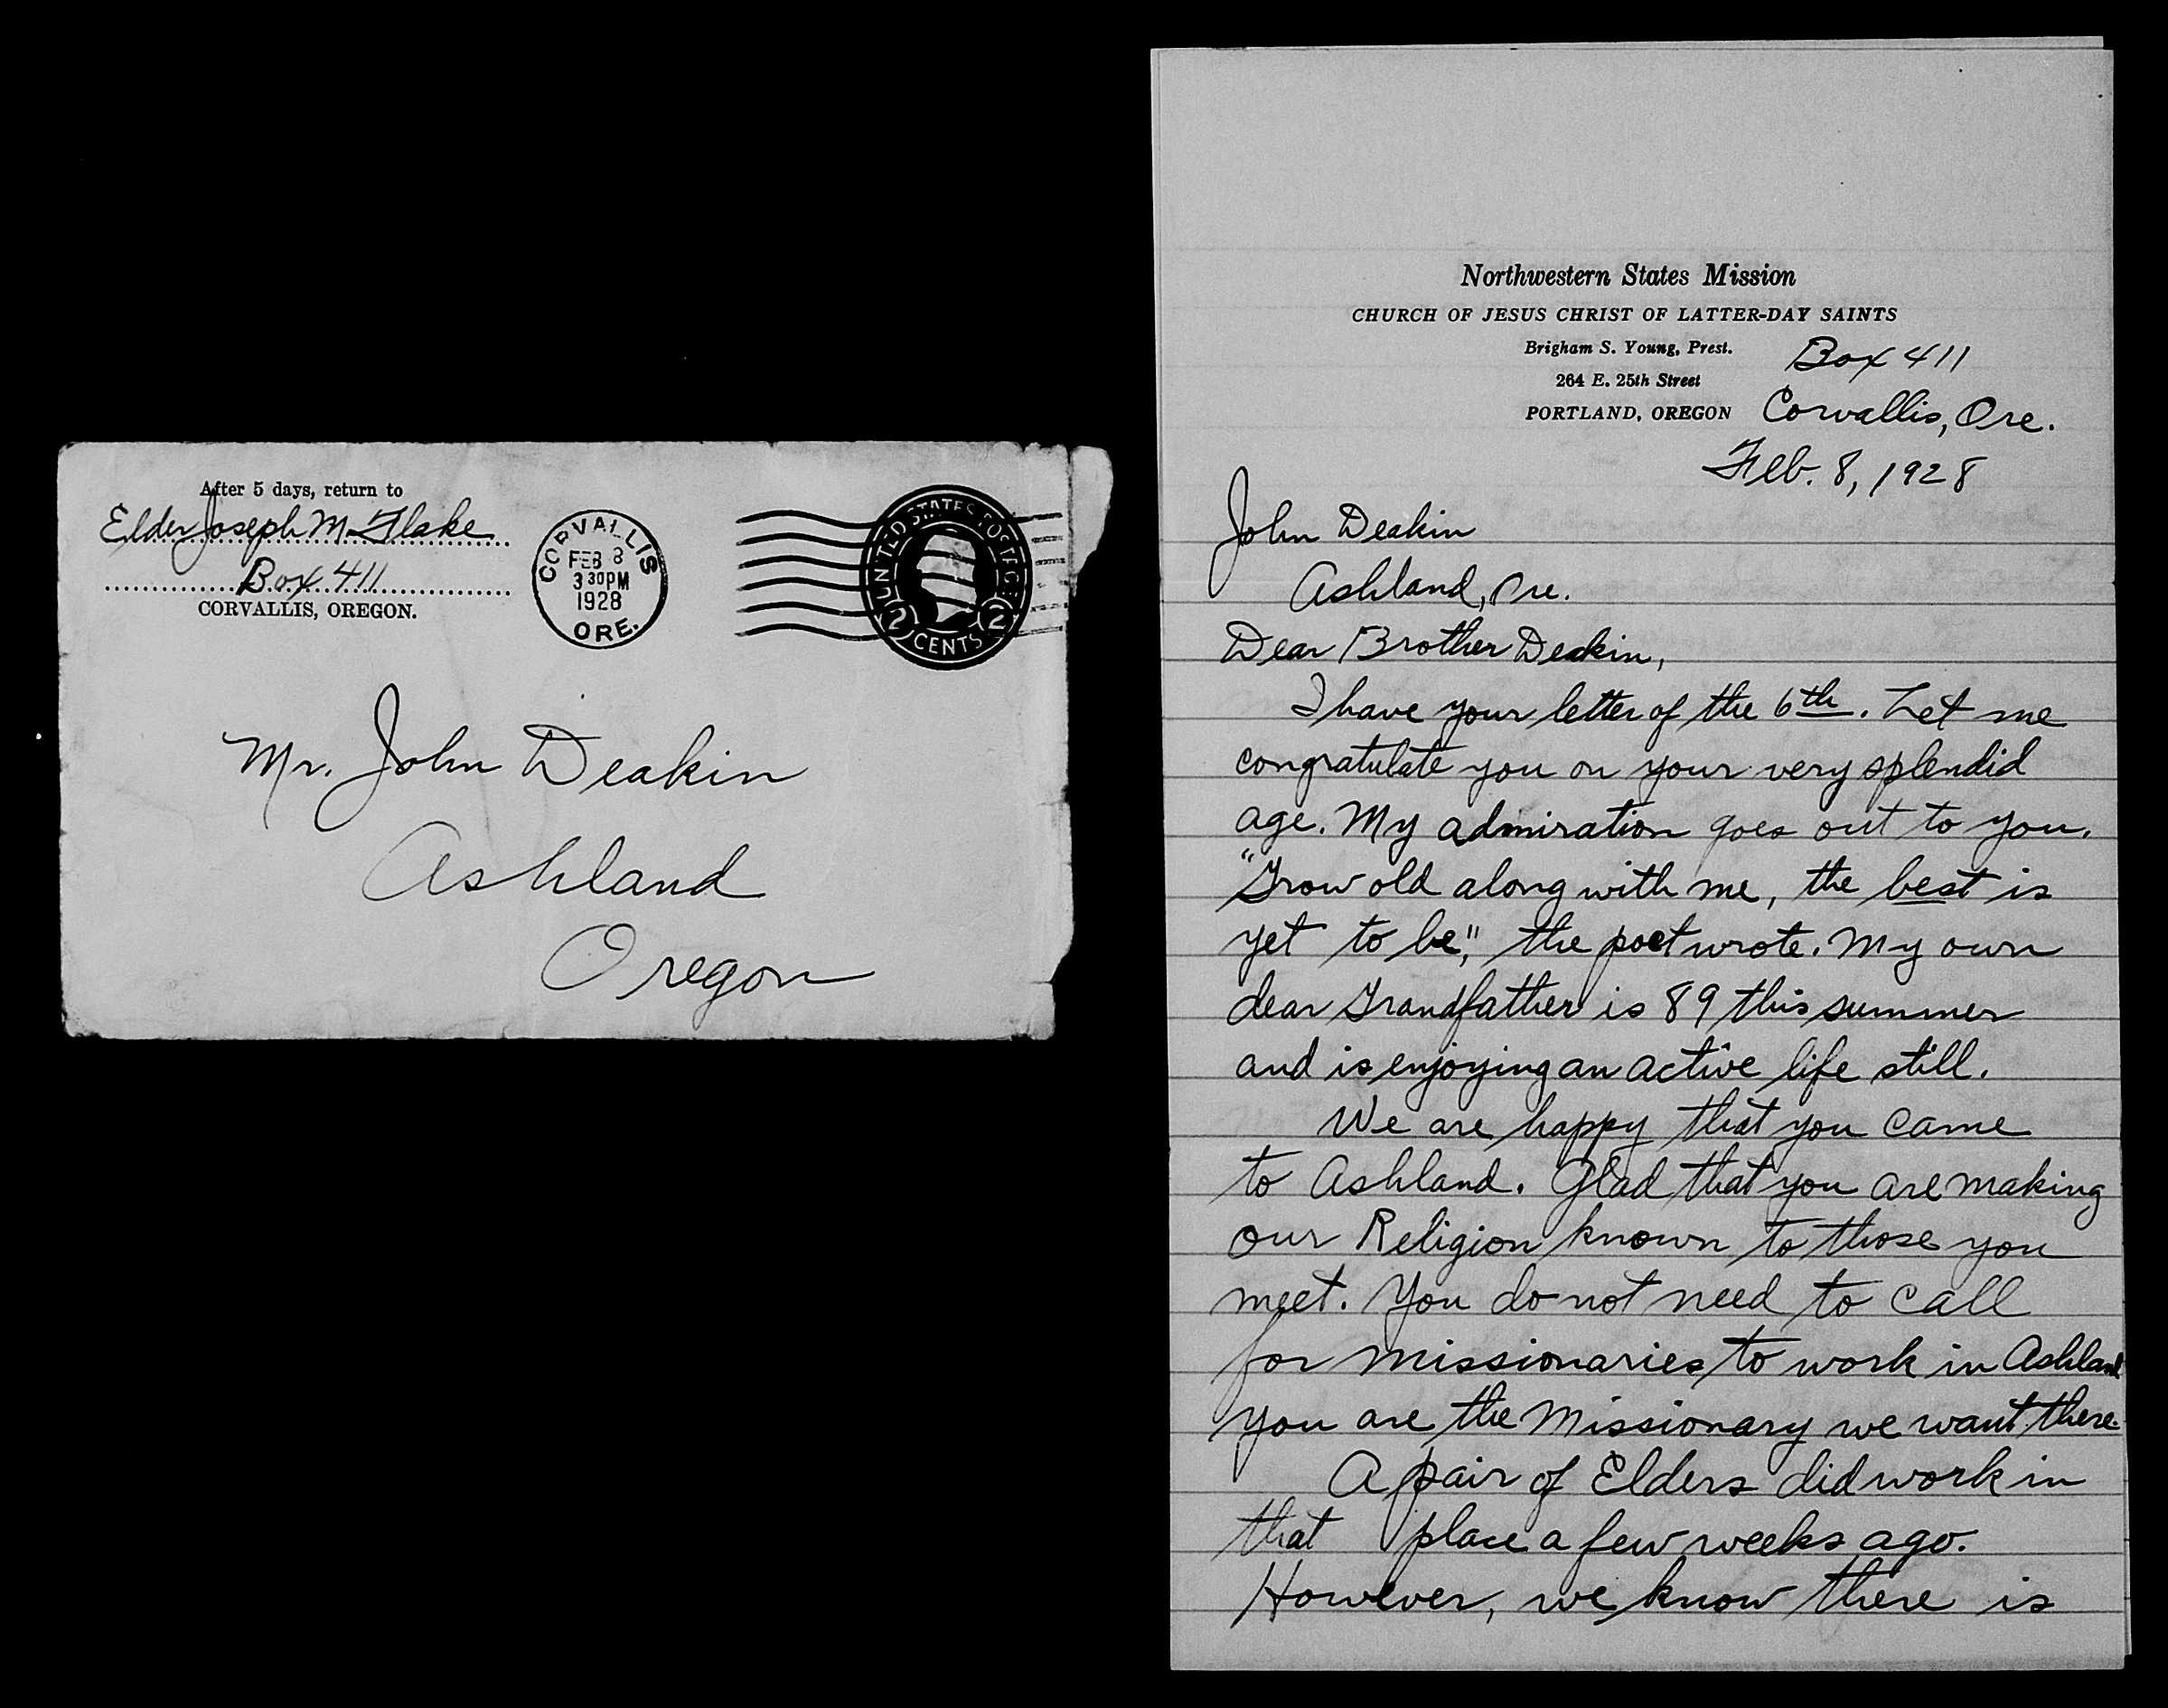 After 5 days, return to
Elder Joseph M. Flake
Box 411
CORVALLIS, OREGON.
CORVALLIS
FEB 8
3 30 PM
1928
ORE.
UNITED STATES POSTAGE
2 CENTS 2
Mr. John Deakin
Ashland
Oregon
Northwestern States Mission
CHURCH OF JESUS CHRIST OF LATTER-DAY SAINTS
Brigham S. Young, Prest.
264 E. 25th Street
PORTLAND, OREGON
Box 411
Corvallis, Ore.
Feb. 8, 1928
John Deakin
Ashland, Ore.
Dear Brother Deakin,
I have your letter of the 6th. Let me
congratulate you on your very splendid
age. My admiration goes out to you.
"Grow old along with me, the best is
yet to be", the poet wrote. My own
dear Grandfather is 89 this summer
and is enjoying an active life still.
We are happy that you came
to Ashland. Glad that you are making
our Religion known to those you
meet. You do not need to call
for missionaries to work in Ashland
you are the Missionary we want there.
A pair of Elders did work in
that place a few weeks ago.
However, we know there is